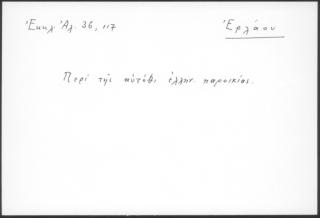 Ἐκκλ. Ἀλ. 36, 117
Ἐρλάου
Περὶ τῆς αὐτόθι ἑλλην. παροικίας.